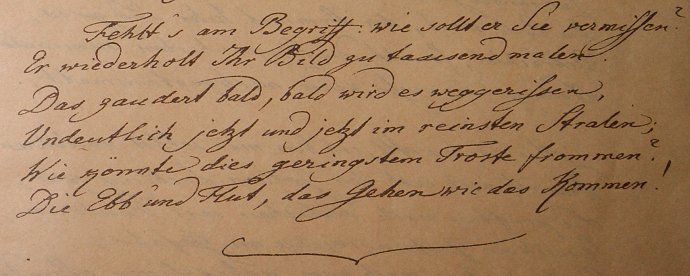 Fehlt's am Begriff: wie sollt er Sie vermissen?
Er wiederholt Ihr Bild zu tausendmalen.
Das zaudert bald, bald wird es weggerissen,
Undeutlich jetzt und jetzt im reinsten Stralen;
Wie könnte dies geringstem Troste frommen?
Die Ebb' und Flut, das Gehen wie das Kommen!